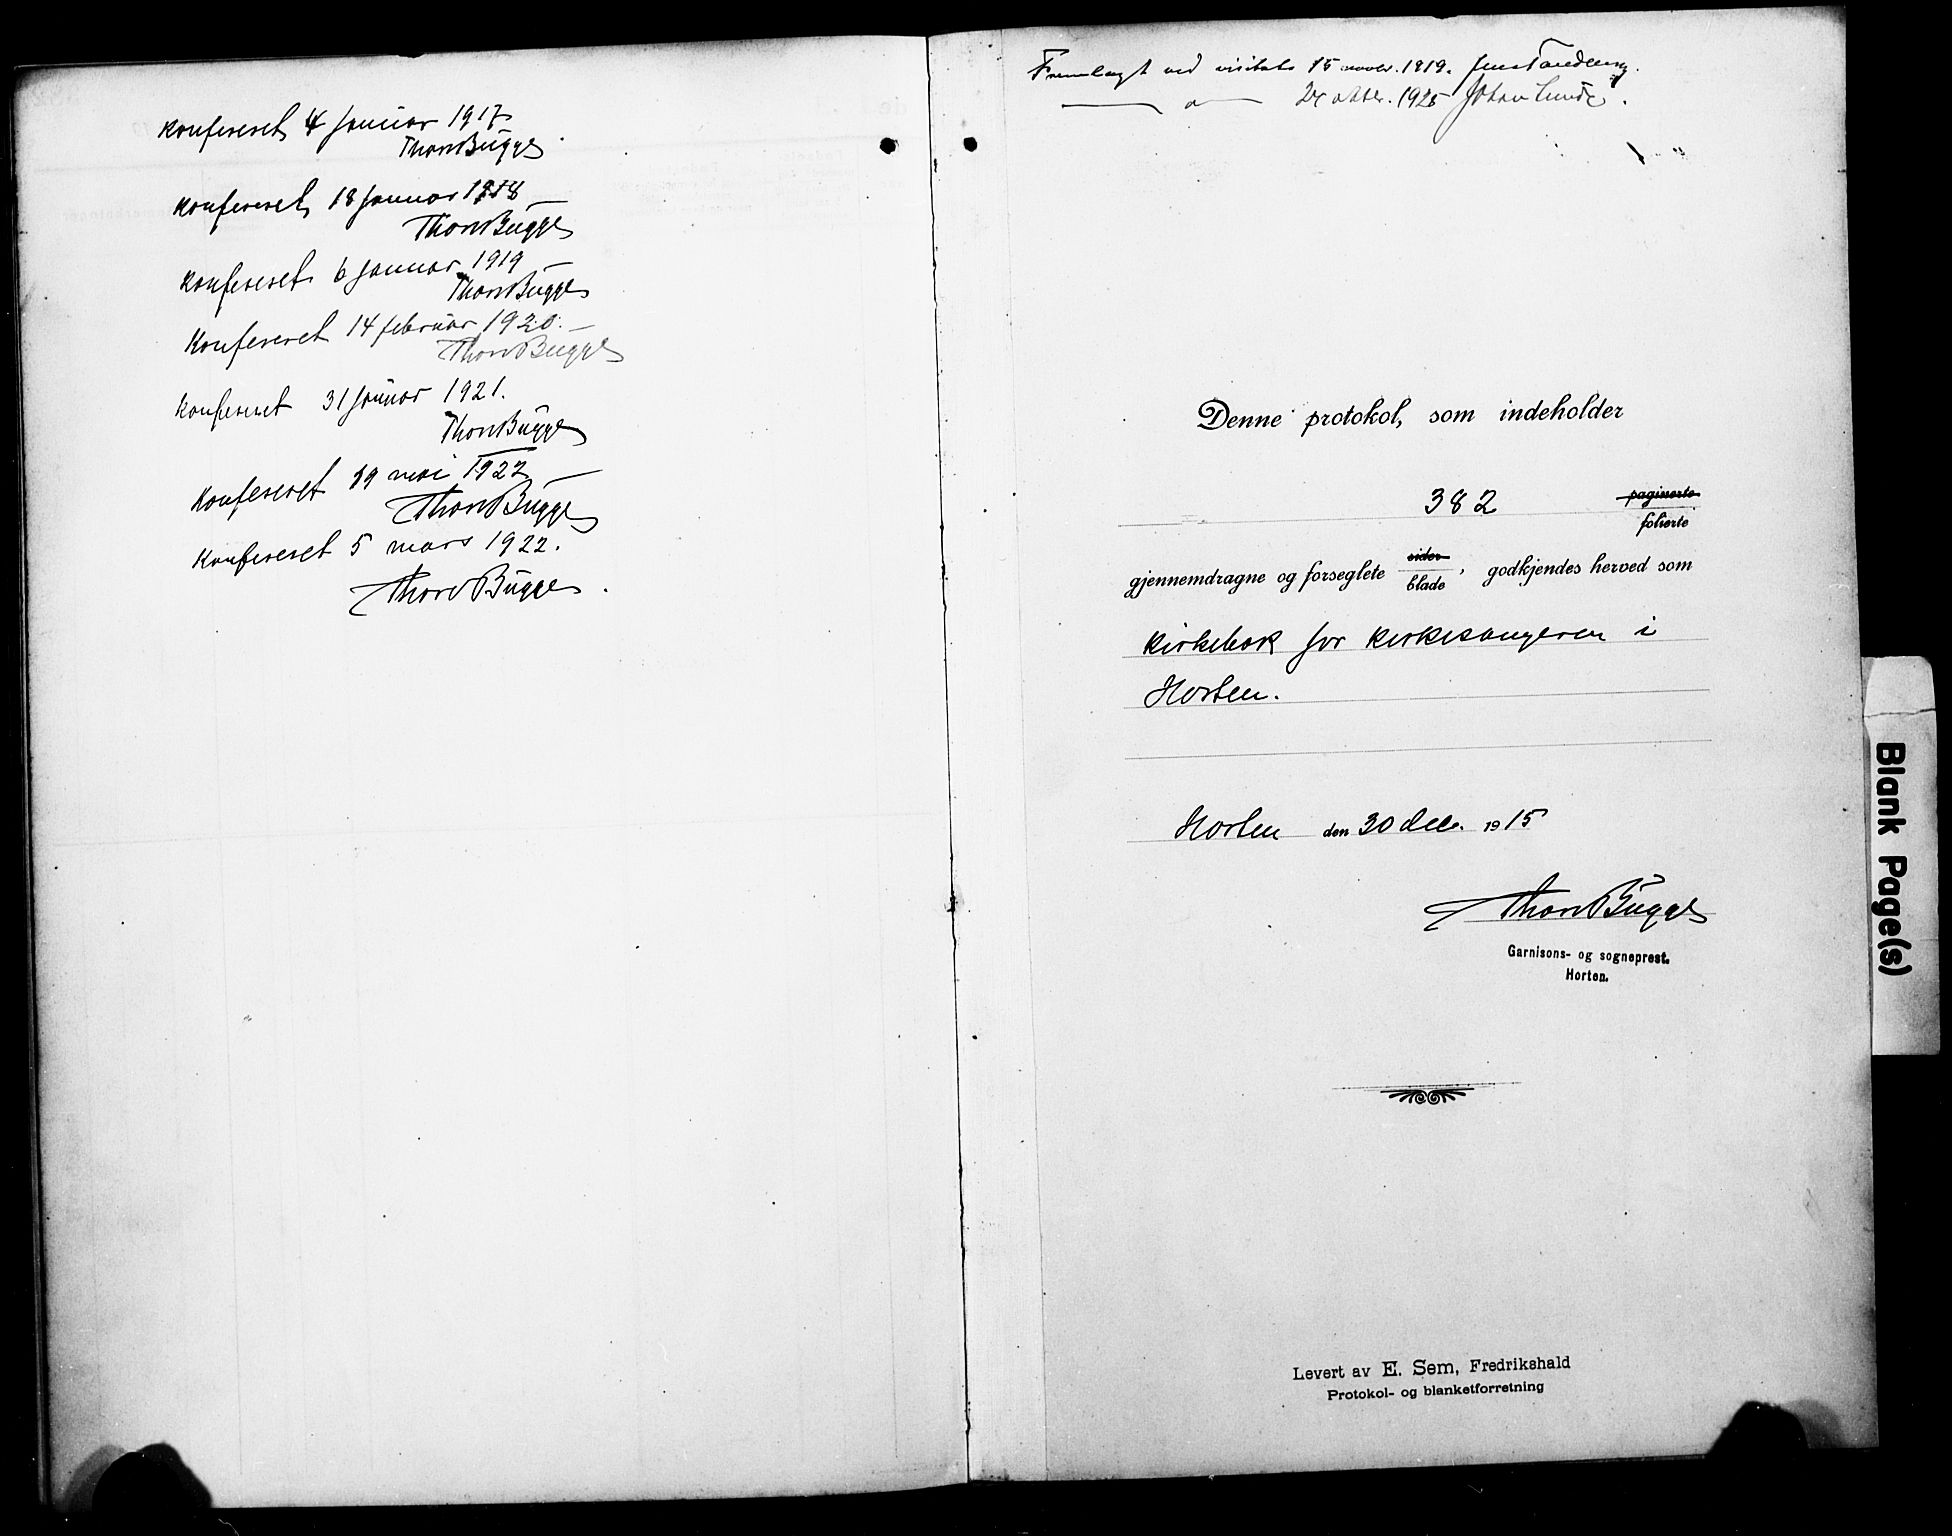 Konfereret 4 januar 1917
Thorv Bugge
Konfereret 18 januar 1918
Thorv Bugge
Konfereret 6 januar 1919
Thorv Bugge
Konfereret 14 februar 1920.
Thorv Bugge
Konfereret 31 januar 1921.
Thorv Bugge
Konfereret 19 mai 1922
Thorv Bugge
Konfereret 5 mars 1922.
Thorv Bugge.
Fremlagt ved visitats 15 novbr. 1919. Jens Tandberg.
— " — 24 oktbr. 1925 Johan Lunde.
Denne protokol, som indeholder
382 paginerte
folierte
gjennemdragne og forseglete sider
blade, godkjendes herved som
Kirkebok for kirkesangeren i
Horten.
Horten den 30 dec. 1915
Thorv Bugge
Garnisons- og sogneprest.
Horten.
Levert av E. Sem, Fredrikshald
Protokol- og blanketforretning
Blank Page(s)